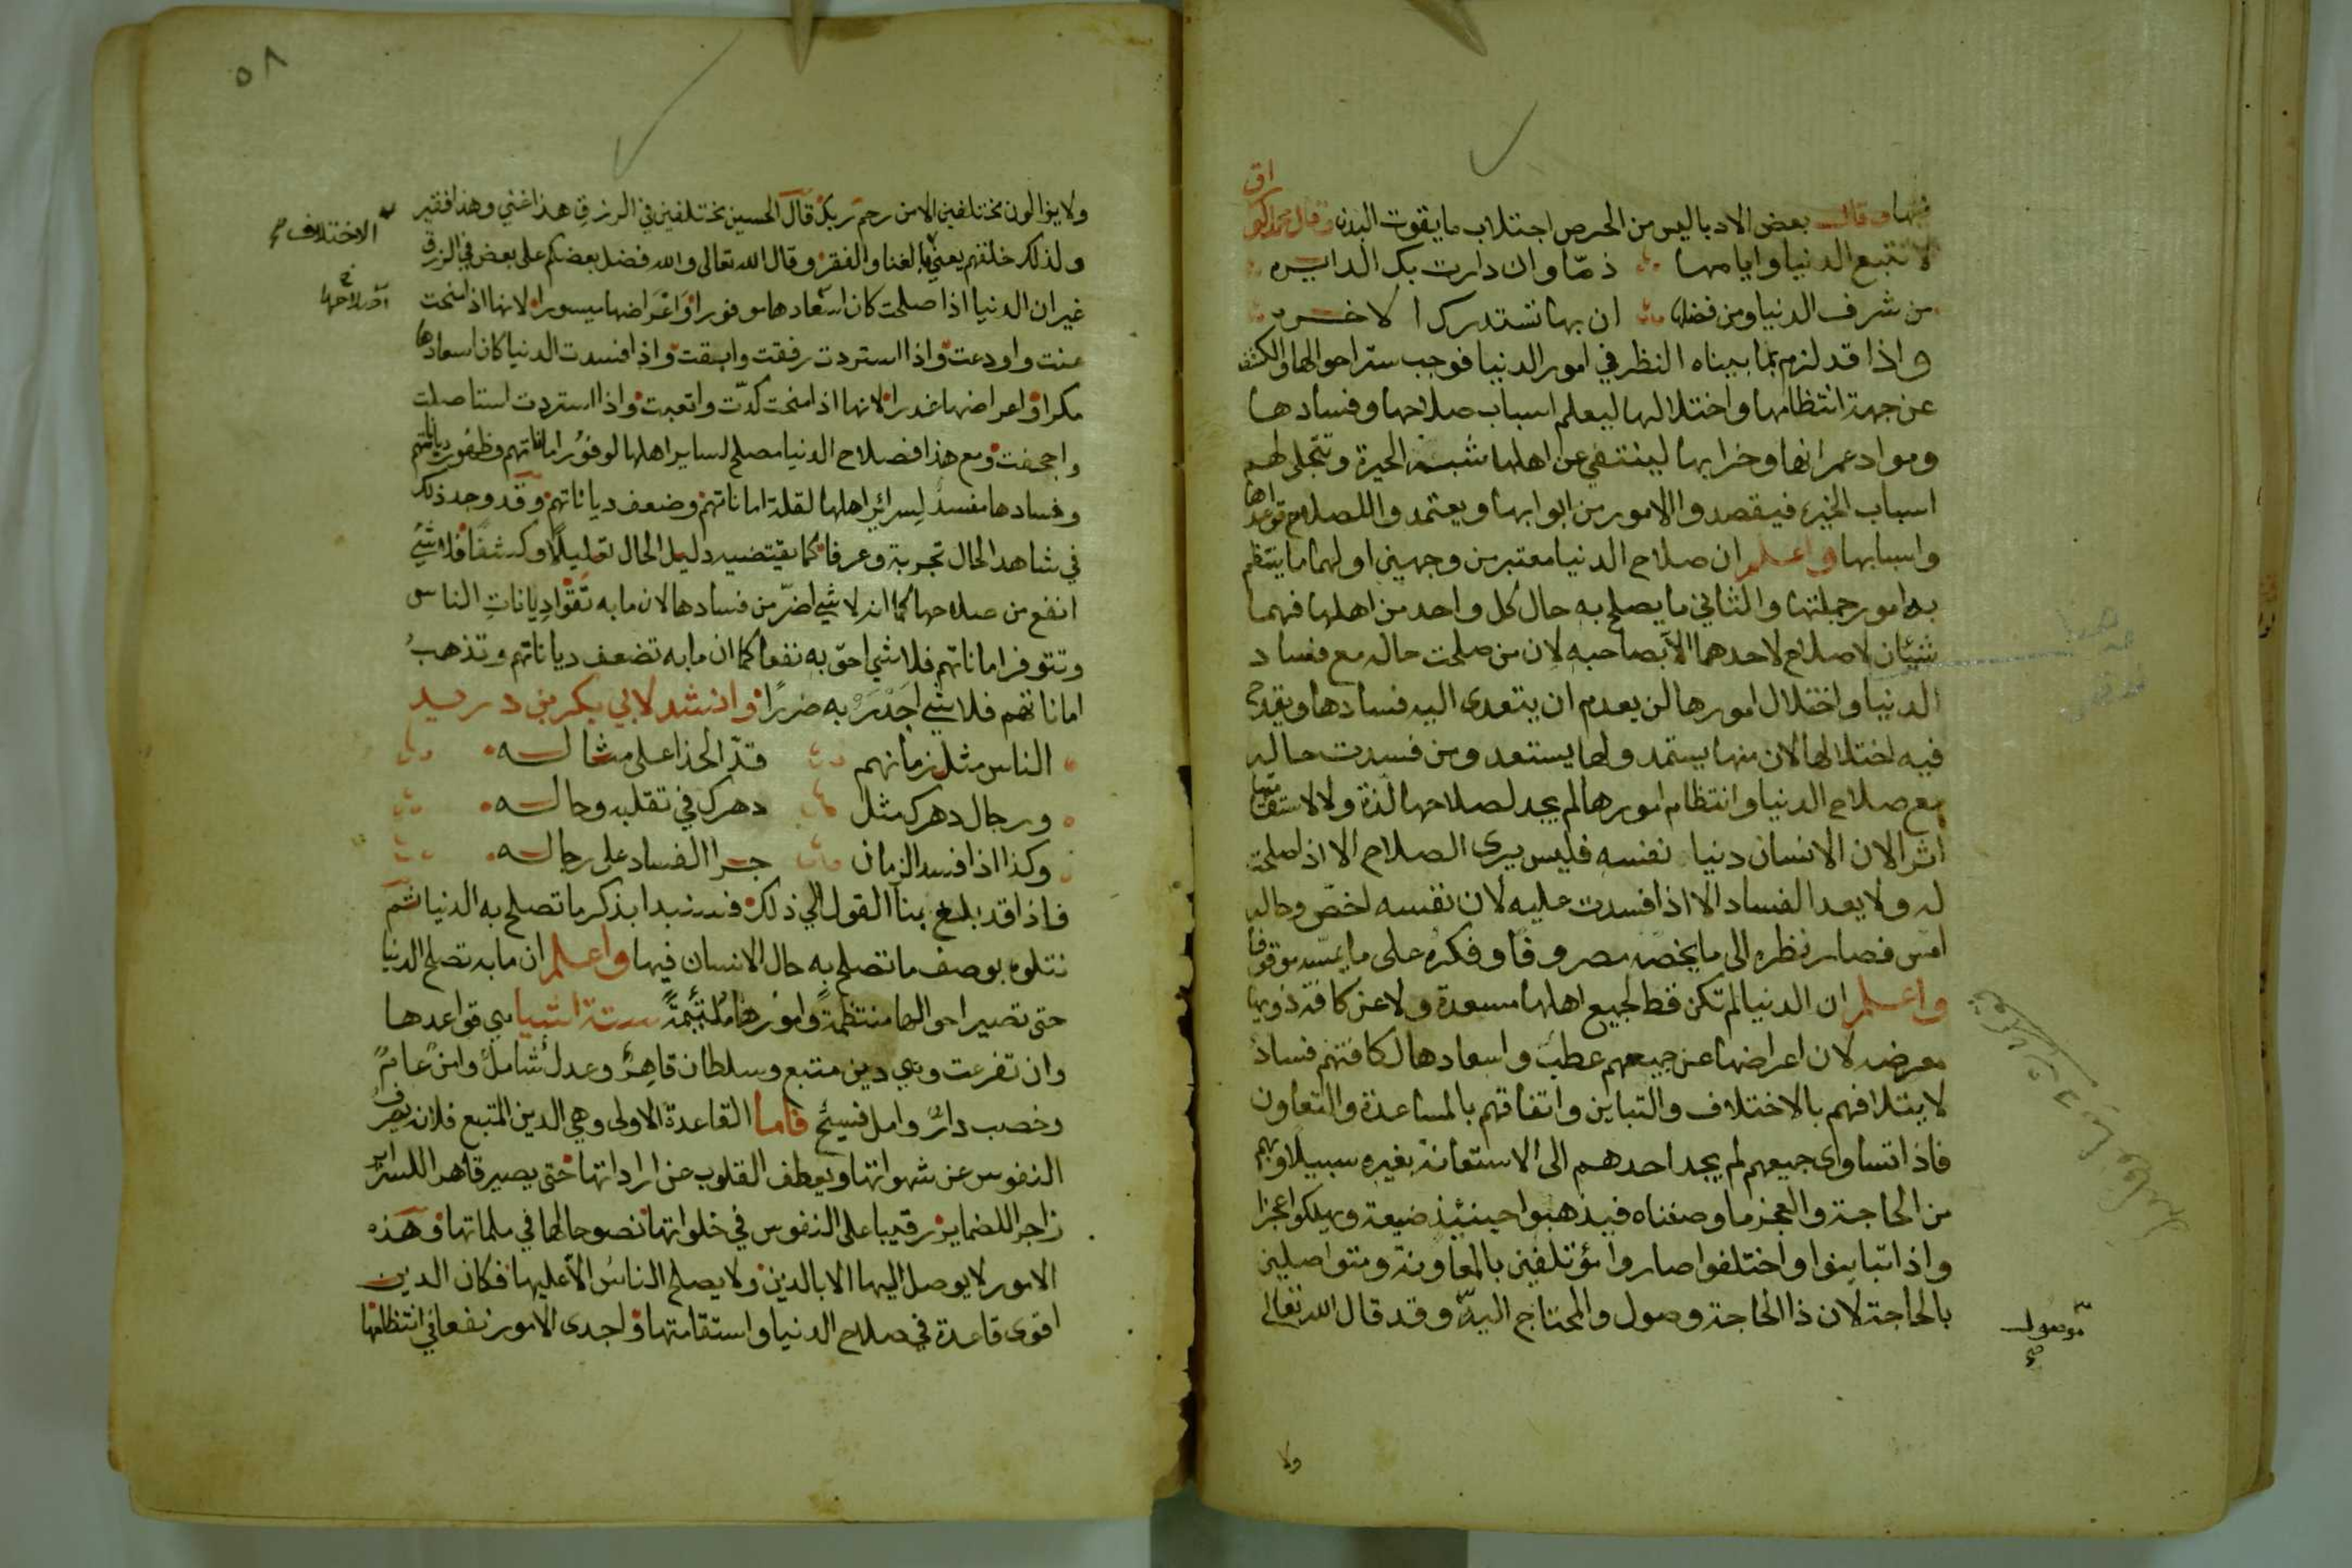 فيها وقال بعض الادبا ليس من الحرص اجتلاب ما يقوت البدن وقال محمود الوراق
لا تتبع الدنيا وايامها ذمّا وان دارت بك الدايره
من شرف الدنيا ومن فضلها ان بها تستدرك الاخره
واذا قد لزم بما بيناه النظر في امور الدنيا فوجب ستر احوالها والكشف
عن جهة انتظامها واختلالها ليعلم اسباب صلاحها وفسادها
ومواد عمرانها وخرابها لينتفي عن اهلها شبه الحيرة وتتجلى لهم
اسباب الخيره فيقصدوا الامور من ابوابها ويعتمدوا للصلاح قواعدها
واسبابها واعلم ان صلاح الدنيا معتبر من وجهين اولهما ما ينتظم
به امور جملتها والثاني ما يصلح به حال كل واحد من اهلها فهما
شيئان لا صلاح لاحدهما الا بصاحبه لان من صلحت حاله مع فساد
الدنيا واختلال امورها لن يعدم ان يتعدى اليه فسادها ويقدح
فيه اختلالها لان منها يستمد ولها يستعد ومن فسدت حاله
مع صلاح الدنيا وانتظام امورها لم يجد لصلاحها لذة ولا لاستقامتها
اثرا لان الانسان دنيا نفسه فليس يرى الصلاح الا اذا صلحت
له ولا يعد الفساد الا اذا فسدت عليه لان نفسه اخصّ وحاله
امس فصار نظره الى ما يخصه مصروفا وفكره على ما يمسه موقوفا
واعلم ان الدنيا لم تكن قط لجميع اهلها مسعدة ولا عن كافة ذويها
معرضه لان اعراضها عن جميعهم عطب واسعادها لكافتهم فساد
لايتلافهم بالاختلاف والتباين واتفاقهم بالمساعدة والتعاون
فاذا تساوى جميعهم لم يجد احدهم الى الاستعانة بغيره سبيلا وبهم
من الحاجة والعجز ما وصفناه فيذهبوا حينئذ ضيعة ويهلكوا عجزا
واذا تباينوا واختلفوا صاروا مؤتلفين بالمعاونة ومتواصلين
بالحاجة لان ذا الحاجة وصول والمحتاج اليه وقد قال الله تعالى
موصول
ولا
٥٨
ولا يزالون مختلفين الا من رحم ربك قال الحسين مختلفين في الرزق هذا غني وهذا فقير
ولذلك خلقهم يعني بالغنا والفقر وقال الله تعالى والله فضل بعضكم على بعض في الرزق
الاختلاف
غير ان الدنيا اذا صلحت كان اسعادها موفورا واعراضها ميسورا لانها اذا منحت
هنت واودعت واذا استردت رفقت وابقت واذا فسدت الدنيا كان اسعادها
مكرا واعراضها غدرا لانها اذا منحت كدّت واتعبت واذا استردت استاصلت
واجحفت ومع هذا فصلاح الدنيا مصلح لساير اهلها لوفور اماناتهم وظهور دياناتهم
وفسادها مفسد لسرائر اهلها لقلة اماناتهم وضعف دياناتهم وقد وجد ذلك
في شاهد الحال تجربة وعرفا كما يقتضيه دليل الحال تعليلا وكشفا فلا شئ
انفع من صلاحها كما انه لا شئ اضرّ من فسادها لان ما به تقوا ديانات الناس
وتتوفر اماناتهم فلا شئ احق به نفعا كما ان ما به تضعف دياناتهم وتذهب
اماناتهم فلا شئ اجدر به ضررا وانشد لابي بكر بن دريد
الناس مثل زمانهم قدّ الحذا على مثاله
ورجال دهرك مثل دهرك في تقلبه وحاله
وكذا اذا فسد الزمان جرا الفساد على رجاله
فاذا قد بلغ بنا القول الي ذلك فسنبدا بذكر ما تصلح به الدنيا ثم
نتلوه بوصف ما تصلح به حال الانسان فيها واعلم ان ما به تصلح الدنيا
حتى تصير احوالها منتظمة وامورها ملتئمة ستة اشيا هي قواعدها
وان تفرعت وهي دين متبع وسلطان قاهر وعدل شامل وامن عام
وخصب دارّ وامل فسيح فاما القاعدة الاولى وهي الدين المتبع فلانه يصرف
النفوس عن شهواتها ويعطف القلوب عن اراداتها حتى يصير قاهرا للسراير
زاجرا للضماير رقيبا على النفوس في خلواتها نصوحا لها في ملماتها وهذه
الامور لا يوصل اليها الا بالدين ولا يصلح الناس الا عليها فكان الدين
اقوى قاعدة في صلاح الدنيا واستقامتها واجدى الامور نفعا في انتظامها